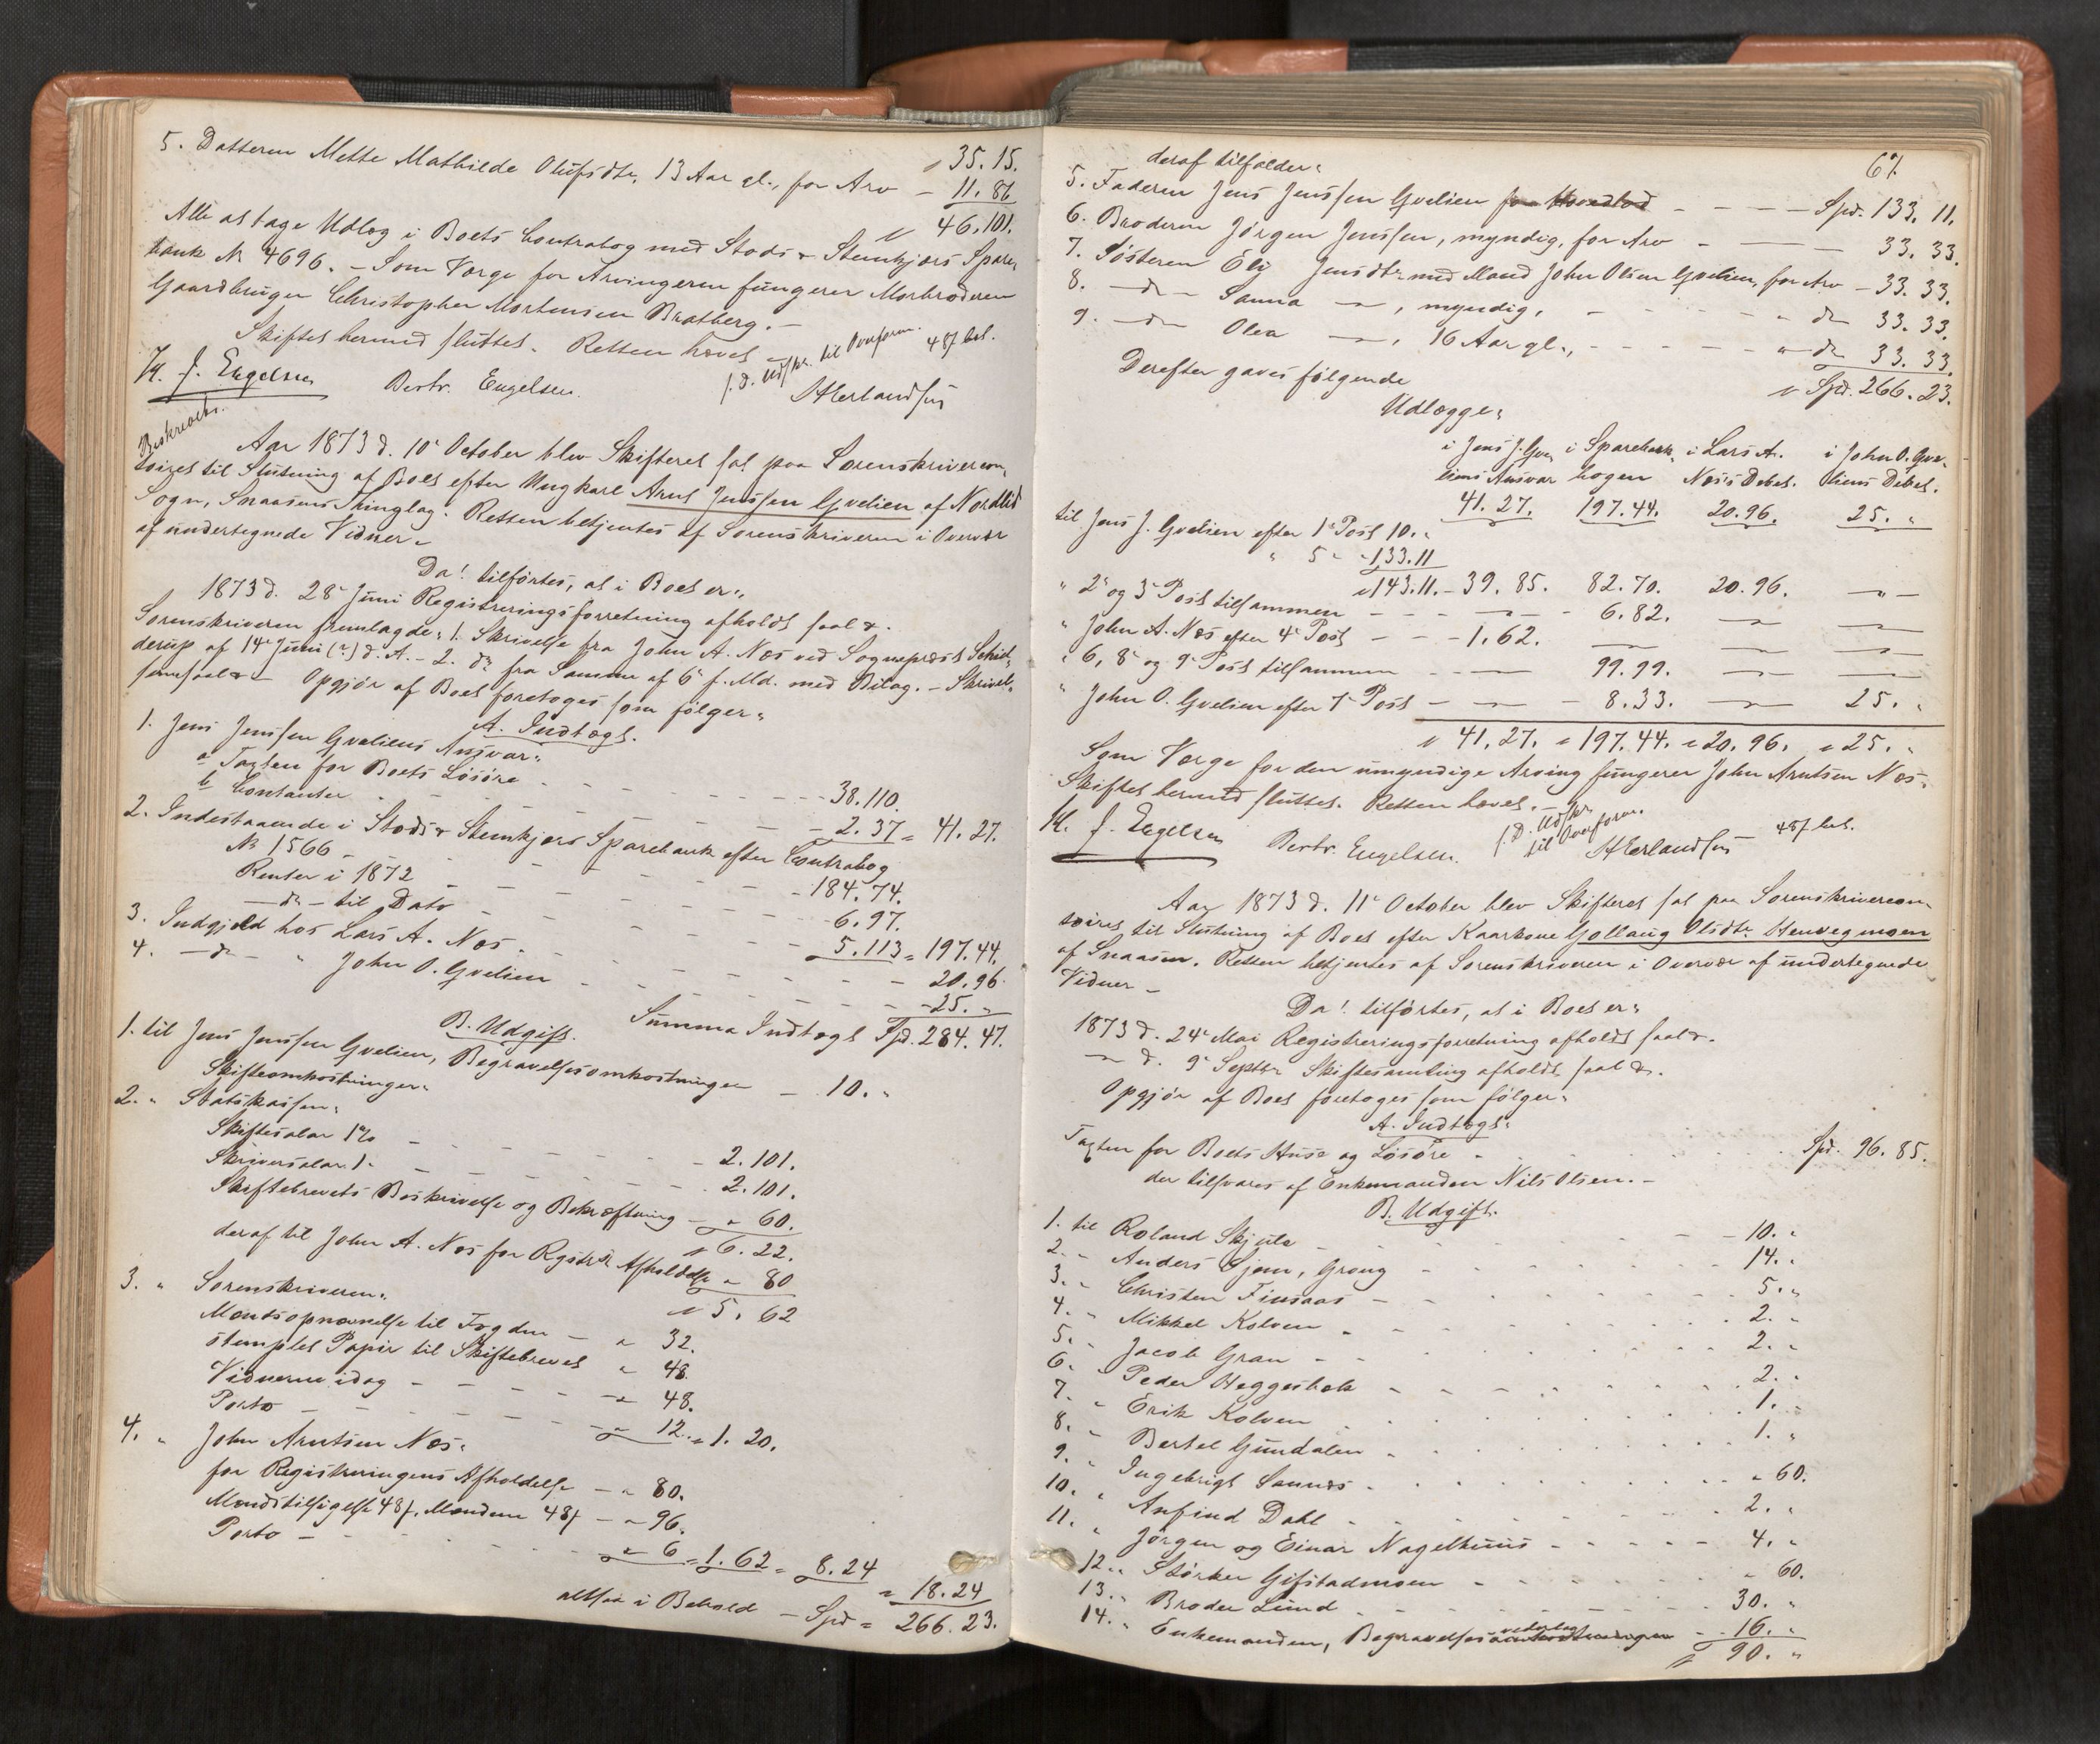 " 35. 15.
5. Datteren Mette Mathilde Olufsdtr, 13 Aar gl., for Arv – 11. 86
" 46. 101.
Alle at tage Udlæg i Boets Contrabog med Stods & Stenkjærs Spare-
bank Nr 4696. – Som Værge for Arvingerne fungerer Morbroderen
Gaardbruger Christopher Mortensen Bratberg. –
Skiftet hermed sluttet. Retten hævet –
f. D. Udskr. til Overform. 48 s bet.
K. J. Engelsen Bertr. Engelsen. HErlandsen
Beskrevet.
Aar 1873 d. 10de October blev Skifteret sat paa Sorenskrivercon-
toiret til Slutning af Boet efter Ungkarl Arnt Jenssen Gvelien af Nordlid
Sogn, Snaasens Thinglag. Retten betjentes af Sorenskriveren i Overvær
af undertegnede Vidner –
Da! tilførtes, at i Boet er:
1873 d. 28de Juni Registreringsforretning afholdt saal. &.
Sorenskriveren fremlagde: 1. Skrivelse fra John A. Næs ved Sognepræst Schid-
derup af 14de Juni (?) d. A. – 2. do fra Samme af 6te f. Md. med Bilag. – Skrivel-
serne saal. & – Opgjør af Boet foretoges som følger:
A. Indtægt.
1. Jens Jenssen Gveliens Ansvar:
a Taxten for Boets Løsøre - - - - 38. 110.
b Contanter - - - - 2. 37 = 41. 27.
2. Indestaaende i Stods & Stenkjærs Sparebank efter Contrabog
Nr 1566 - - - - 184. 74.
Renter i 1872 - - - - 6. 97.
– do – til Dato - - - - 5. 113 = 197. 44.
3. Indgjeld hos Lars A. Næs - - - - 20. 96
4. – do – " John O. Gvelien - - - - 25. "
Summa Indtægt Spd. 284. 47.
B. Udgift.
1. til Jens Jenssen Gvelien, Begravelsesomkostninger – 10. "
Skifteomkostninger:
2. " Statskassen:
Skiftesalar 1% - - - - 2. 101.
Skriversalar 1 - - - - - 2. 101.
Skiftebrevets Beskrivelse og Bekræftning – " 60.
" 6. 22.
deraf til John A. Næs for Regstr. Afholdelse " 80
" 5. 62
3. " Sorenskriveren:
Mændsopnævnelse til Fogden – " 32.
stemplet Papir til Skiftebrevet " 48.
Vidnerne idag – – – – " 48.
Porto – – – – " 12. = 1. 20.
4. " John Arntsen Næs:
for Registreringens Afholdelse – " 80.
Mændstilsigelse 48 s, Mændene 48 s – " 96.
Porto – - - - " 6 = 1. 62 = 8. 24
= 18. 24
altsaa i Behold – Spd = 266. 23.
67.
deraf tilfalder:
5. Faderen Jens Jenssen Gvelien for Hovedlod – – – Spd. 133. 11.
6. Broderen Jørgen Jenssen, myndig, for Arv – – 33. 33.
7. Søsteren Eli Jensdtr med Mand John Olsen Gvelien, for Arv – 33. 33.
8. – do – Sanna – " –, myndig, - - - " do 33. 33.
9. – do – Olea – " –, 16 Aar gl., - - - " do 33. 33.
" Spd. 266. 23.
Derefter gaves følgende
Udlægge:
i Jens J. Gve- i Sparebank- i Lars A. i John O. Gve-
liens Ansvar bogen Næss Debet. liens Debet.
41. 27. 197. 44. 20. 96. 25. "
til Jens J. Gvelien efter 1ste Post 10. "
" 5 " " 133. 11
" 143. 11. – 39. 85. 82. 70. 20. 96. – " –
" 2den og 3die Post tilsammen – – – " – 6. 82. – " – – " –
" John A. Næs efter 4de Post – – – 1. 62. – " – – " – – " –
" 6, 8de og 9de Post tilsammen – – " – 99. 99. – " – – " –
" John O. Gvelien efter 7de Post – – " – 8. 33. – " – 25. "
" 41. 27. " 197. 44. " 20. 96. " 25. "
Som Værge for den umyndige Arving fungerer John Arntsen Næs.
Skiftet hermed sluttet. Retten hævet. –
f. D. Udskr. til Overform. 48 s bet.
K. J. Engelsen Bertr. Engelsen. HErlandsen
Aar 1873 d. 11te October blev Skifteret sat paa Sorenskrivercon-
toiret til Slutning af Boet efter Kaarkone Gollaug Olsdtr. Henvegmoen
af Snaasen. Retten betjentes af Sorenskriveren i Overvær af undertegnede
Vidner –
Da! tilførtes, at i Boet er:
1873 d. 24de Mai Registreringsforretning afholdt saal. &.
– " – d. 9de Septbr Skiftesamling afholdt saal. &.
Opgjør af Boet foretoges som følger:
A. Indtægt:
Taxten for Boets Huse og Løsøre - - - - Spd. 96. 85.
der tilsvares af Enkemanden Nils Olsen. –
B. Udgift.
1. til Roland Skjule - - - - 10. "
2. " Anders Gjem, Grong - - - - 14. "
3. " Christen Finsaas - - - - 5. "
4. " Mikkel Kolven - - - - 2. "
5. " Jacob Gran - - - - 2. "
6. " Peder Heggesbak - - - - 2. "
7. " Erik Kolven - - - - 1. "
8. " Bertel Gundalen - - - - 1. "
9. " Ingebrigt Sannæs - - - - " 60.
10. " Anfind Dahl - - - - 2. "
11. " Jørgen og Einar Nagelhuus - - - - 4. "
12. " Størker Gifstadmoen - - - - " 60.
13. " Broder Lund - - - - 30. "
14. " Enkemanden, Begravelsesvederlag - - 16. "
" 90. "